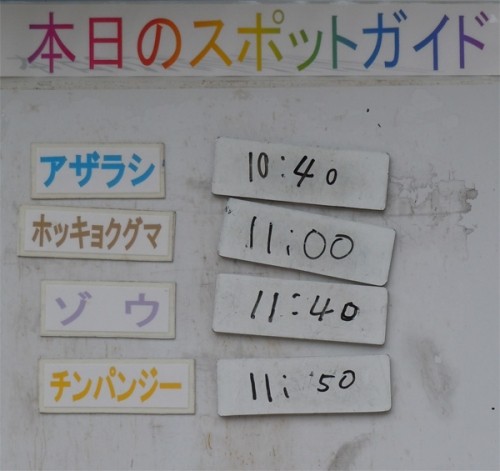 本日のスポットガイド
アザラシ 10:40
ホッキョクグマ 11:00
ゾウ 11:40
チンパンジー 11:50